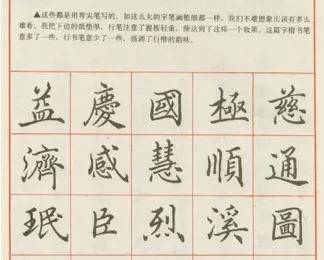 ▲这些都是用弯尖笔写的，如这么大的字笔画粗细都一样，我们不难想象出该有多么
难看，我把下边的纸垫厚，行笔注意了提按轻重，便达到了这样一个效果，这篇字楷书笔
意多了一些，行书笔意少了一些，强调了行楷的韵味。
益慶國極慈
濟感慧順通
珉臣烈溪圖